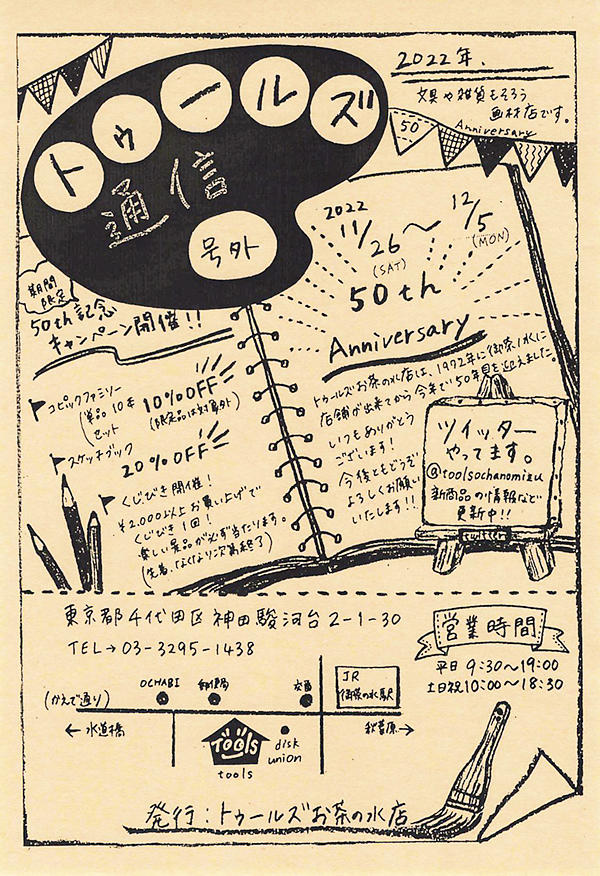 トゥールズ
通信
号外
2022年、
文具や雑貨もそろう
画材店です。
Anniversary
50
期間
限定
50th記念
キャンペーン開催!!
コピックファミリー
(単品10本
セット
10%OFF
(限定品は対象外)
スケッチブック
20%OFF
くじびき開催!
¥2,000以上お買い上げで
くじびき1回!
楽しい景品が必ず当たります。
(先着、なくなり次第終了)
2022
11/26〜12/5
(SAT)
(MON)
50th
Anniversary
トゥールズお茶の水店は、1972年に御茶ノ水に
店舗が出来てから今年で50年目を迎えました。
いつもありがとう
ございます!
今後ともどうぞ
よろしくお願い
いたします!!
ツイッター
やってます。
@toolsochanomizu
新商品の情報など
更新中!!
twitter
東京都千代田区神田駿河台2-1-30
TEL→03-3295-1438
営業時間
平日 9:30〜19:00
土日祝10:00〜18:30
OCHABI
郵便局
交番
JR
御茶の水駅
(かえで通り)
←水道橋
秋葉原→
TOOLS
tools
disk
union
発行:トゥールズお茶の水店